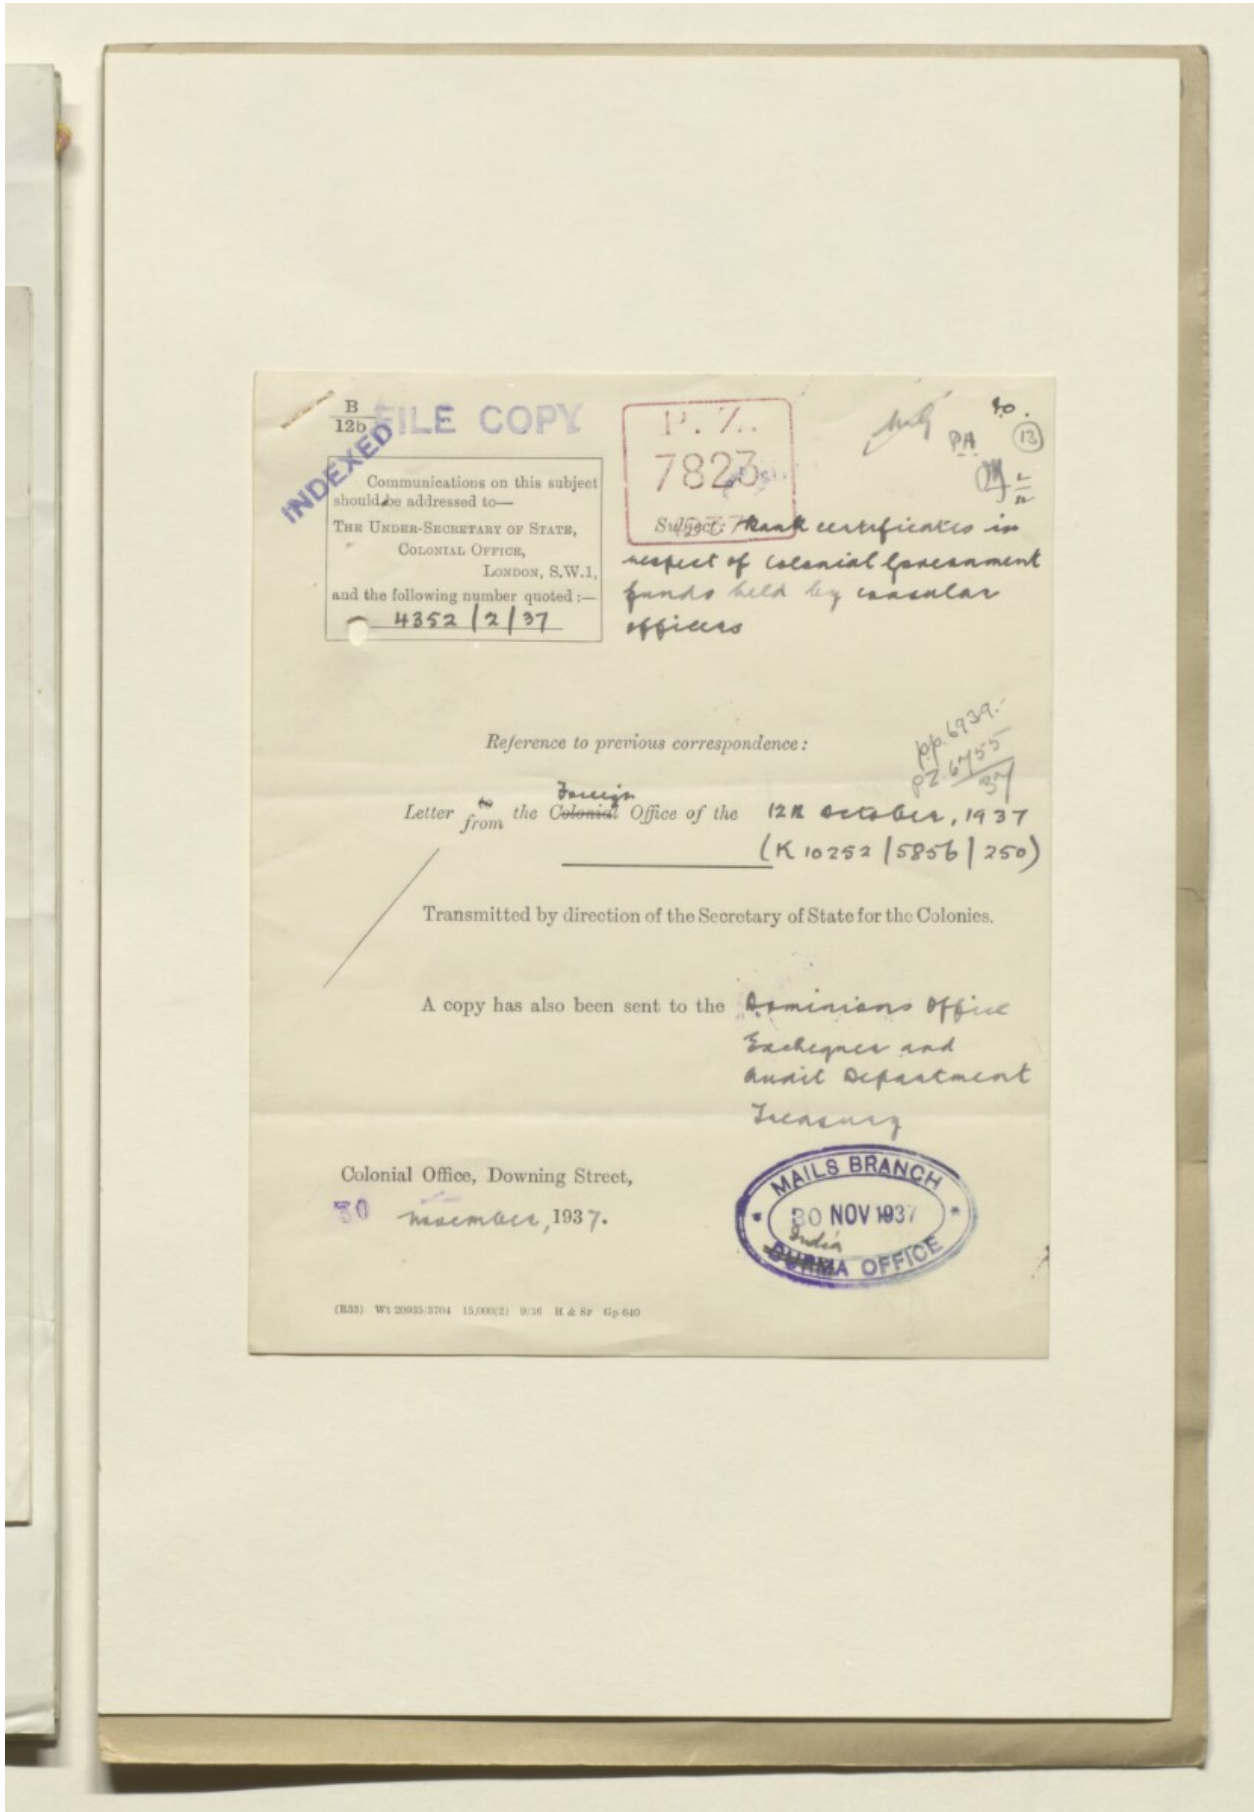 B
12b
FILE COPY
INDEXED
P. Z.
7823
1937
P.A.
13
Communications on this subject
should be addressed to—
THE UNDER-SECRETARY OF STATE,
COLONIAL OFFICE,
LONDON, S.W.1,
and the following number quoted :—
4352/2/37
Subject: Bank certificates in
respect of Colonial Government
funds held by consular
officers
Reference to previous correspondence:
pp. 6939.-
PZ. 6755
37
Letter to from the Colonial Foreign Office of the 12th October, 1937
(K 10252/5856/250)
Transmitted by direction of the Secretary of State for the Colonies.
A copy has also been sent to the Dominions Office
Exchequer and
Audit Department
Treasury
Colonial Office, Downing Street,
30 November, 1937.
MAILS BRANCH
30 NOV 1937
India
BURMA OFFICE
(R33) Wt 20935/3704 15,000(2) 9/36 H & Sp Gp 640